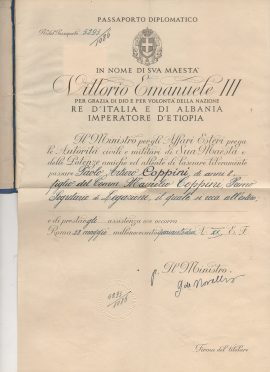 PASSAPORTO DIPLOMATICO
N° del Passaporto 5293/1080
IN NOME DI SVA MAESTA'
Vittorio Emanuele III
PER GRAZIA DI DIO E PER VOLONTÀ DELLA NAZIONE
RE D'ITALIA E DI ALBANIA
IMPERATORE D'ETIOPIA
Il Ministro per gli Affari Esteri prega
le Autorità civili e militari di Sua Maestà e
delle Potenze amiche ed alleate di lasciare liberamente
passare Paolo Arturo Coppini, di anni
figlio del Comm. Coppini, Primo
Segretario di Legazione, il quale si reca all'estero
e di prestargli assistenza ove occorra
Roma, 22 maggio millenovecentoquarantadue A. XX E. F.
p. Il Ministro
Firma del titolare